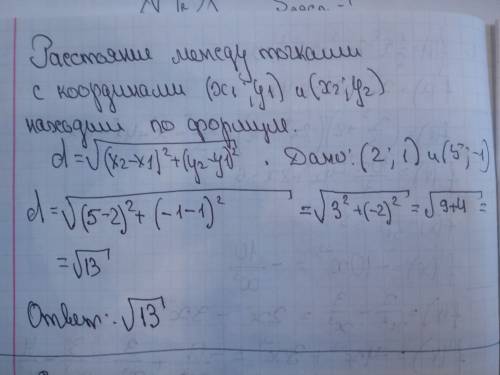 Расстояние между точками
с координами (x1; y1) и (x2; y2)
находим по формуле.
d=√(x2-x1)²+(y2-y1)². Дано: (2; 1) и (5; -1)
d=√(5-2)²+(-1-1)² =√3²+(-2)² =√9+4 =
=√13
Ответ: √13